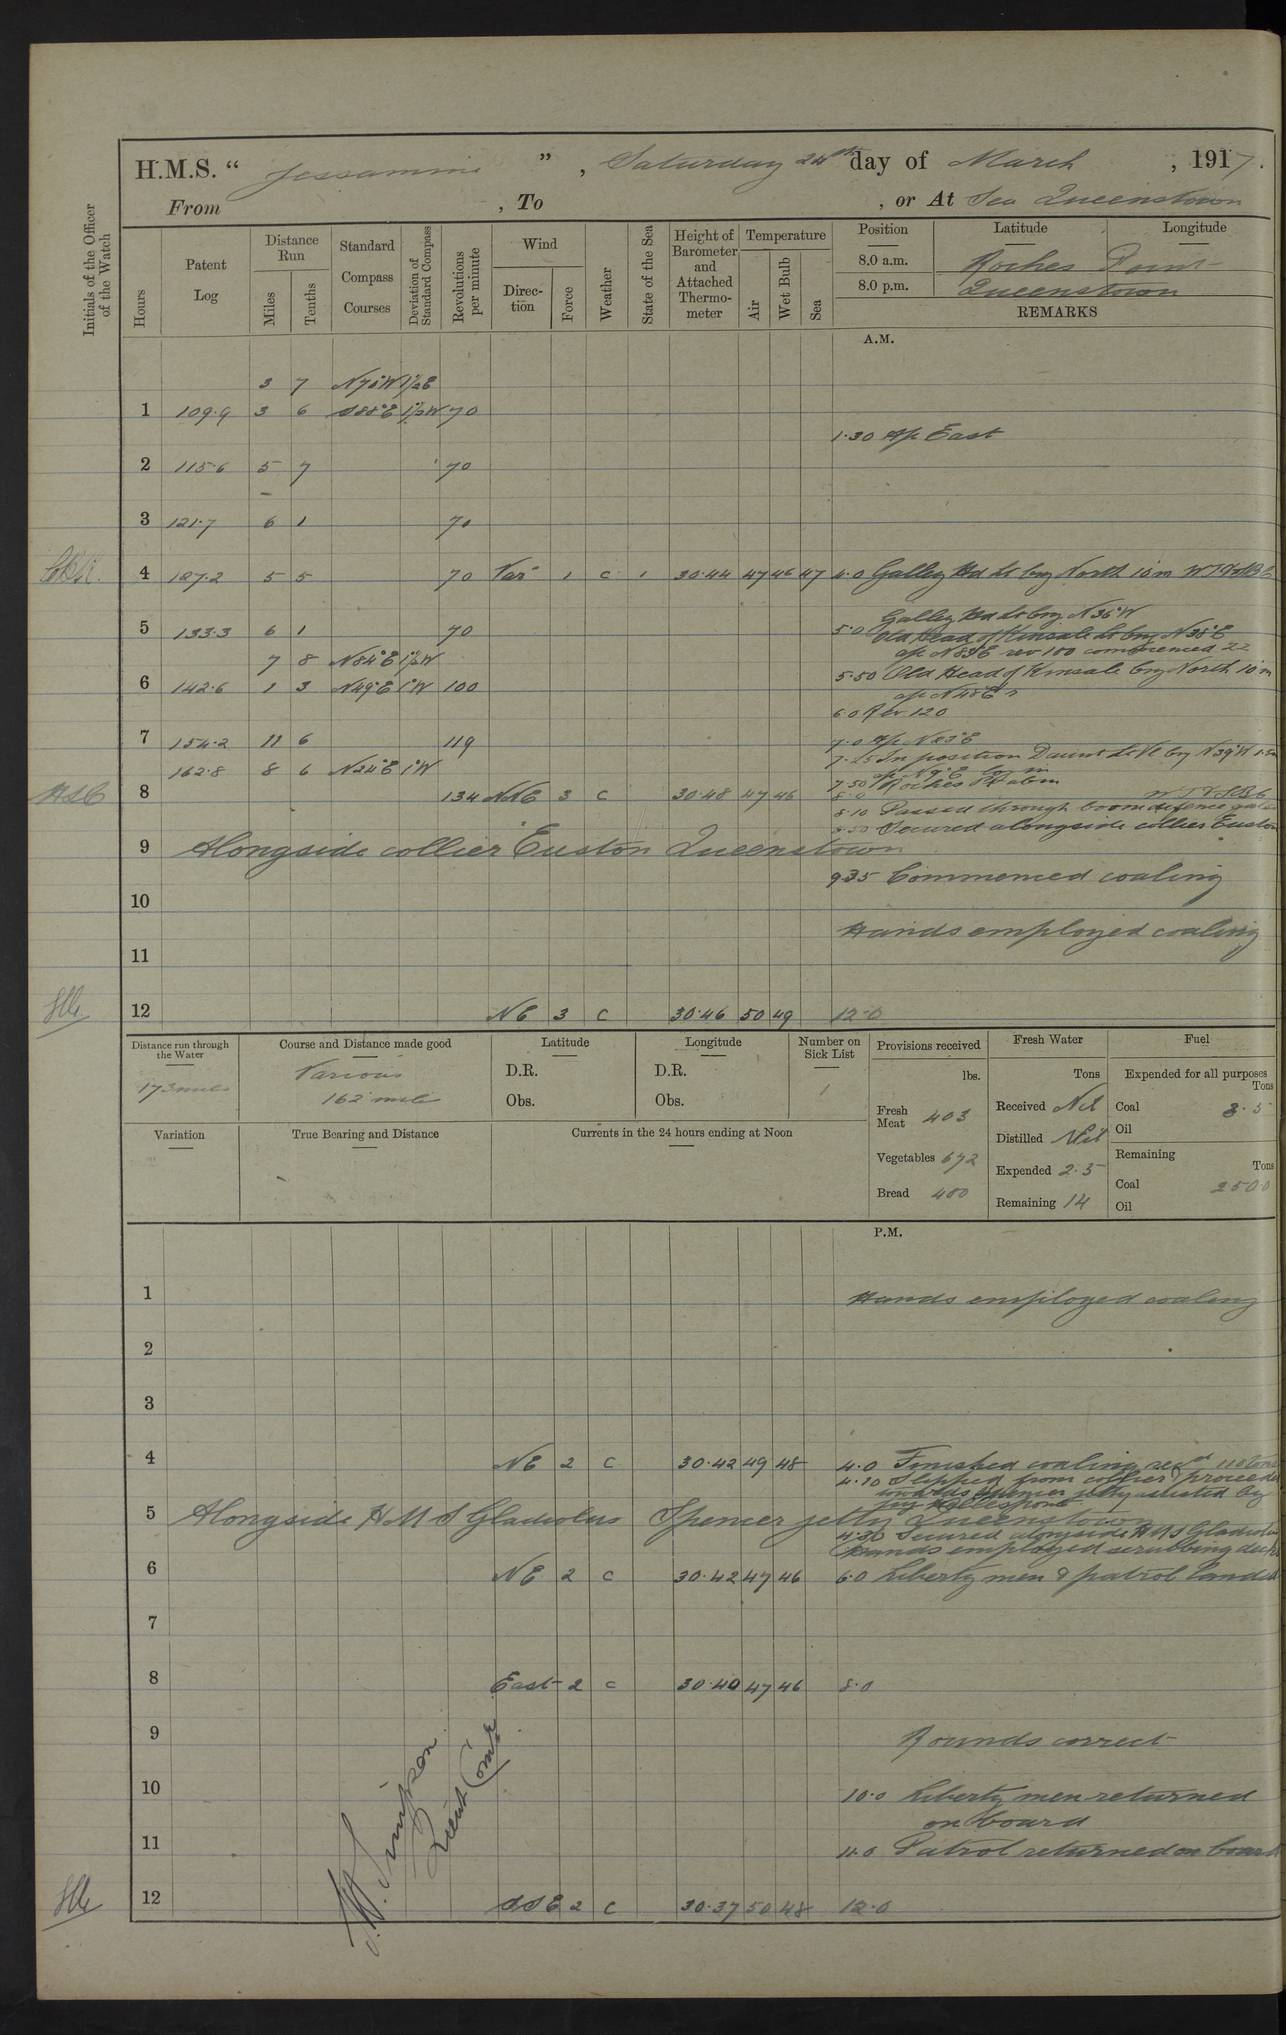 H.M.S. “ Jessamine ” , Saturday 24th day of March , 1917.
From , To , or At Sea Queenstown
Initials of the Officer of the Watch
Hours
Patent Log
Distance Run
Miles
Tenths
Standard Compass Courses
Deviation of Standard Compass
Revolutions per minute
Wind
Direction
Force
Weather
State of the Sea
Height of Barometer and Attached Thermometer
Temperature
Air
Wet Bulb
Sea
Position Latitude Longitude
8.0 a.m. Roches Point
8.0 p.m. Queenstown
REMARKS
A.M.
3 7 N 1½E
1 109.9 3 6 S88°E 1½W 70
1.30 A/c East
2 115.6 5 7 70
3 121.7 6 1 70
4 127.2 5 5 70 Var 1 c 1 30.44 47 46 47 4.0 Galley Hd Lt brg North 10m
Galley Head Lt brg N36°W
5 133.3 6 1 70 5.0 Old Head of Kinsale Lt brg N38°E
a/c N83°E rev 100 commenced ZZ
7 8 N84°E 1½W
5.50 Old Head of Kinsale brg North 10m
6 142.6 1 3 N49°E 1°W 100
a/c N48E
6.0 Rev 120
7 154.2 11 6 119 7.0 A/c N23°E
7.25 In position Daunt Lt Vl brg N39°W
162.8 8 6 N24°E 1°W
7.50 Roches Pt abm
8 134 NNE 3 c 30.48 47 46 8.0
8.10 Passed through boom defence gate
8.50 Secured alongside collier Euston
9 Alongside collier Euston Queenstown
9.35 Commenced coaling
10
Hands employed coaling
11
12 NE 3 c 30.46 50 49 12.0
Distance run through the Water
173 miles
Course and Distance made good
Various
162 mile
Latitude
D.R.
Obs.
Longitude
D.R.
Obs.
Number on Sick List
1
Provisions received
lbs.
Fresh Meat 403
Vegetables 672
Bread 400
Fresh Water
Tons
Received Nil
Distilled Nil
Expended 2.5
Remaining 14
Fuel
Expended for all purposes
Tons
Coal 8.5
Oil
Remaining
Tons
Coal 250.0
Oil
Variation
True Bearing and Distance
Currents in the 24 hours ending at Noon
P.M.
1 Hands employed coaling
2
3
4 NE 2 c 30.42 49 48 4.0 Finished coaling recd 110 tons
4.10 Slipped from collier & proceeded
towards Spencer jetty assisted by
tug Hellespont
5 Alongside HMS Gladiolus Spencer jetty Queenstown
4.30 Secured alongside HMS Gladiolus
Hands employed scrubbing decks
6 NE 2 c 30.42 47 46 6.0 Liberty men & patrol landed
7
8 East 2 c 30.40 47 46 8.0
9 Rounds correct
10 10.0 Liberty men returned
on board
11 11.0 Patrol returned on board
12 SSE 2 c 30.37 50 48 12.0
Simpson
Lieut Comr